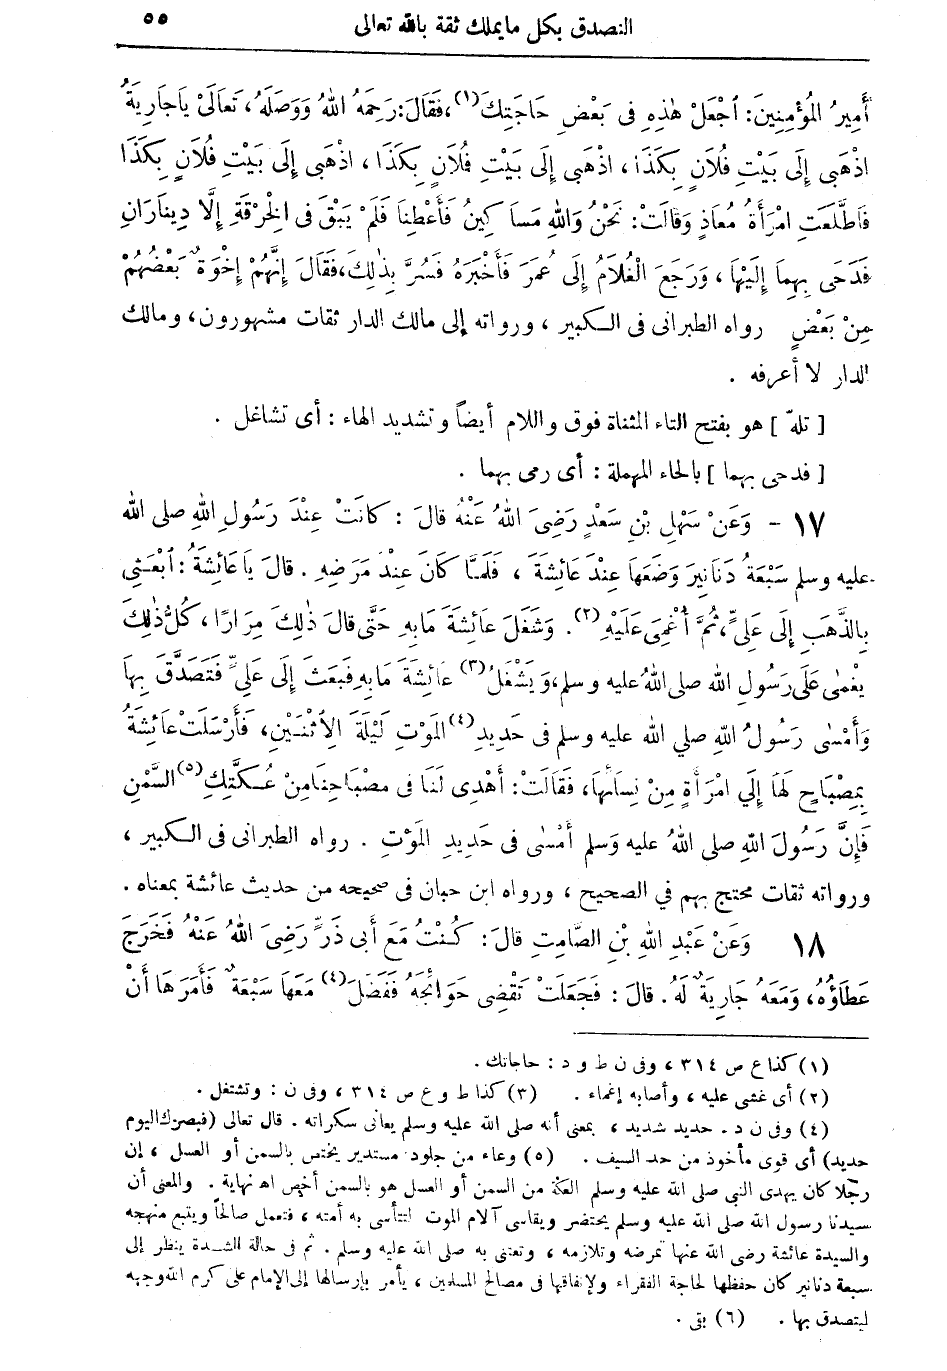 التصدق بكل مايملك ثقة بالله تعالى ٥٥
أَمِيرُ الْمُؤْمِنِينَ: اَجْعَلْ هٰذِهِ فِى بَعْضِ حَاجَتِكَ(١)، فَقَالَ: رَحِمَهُ اللهُ وَوَصَلَهُ، تَعَالَىْ يَاجَارِيَةُ
اذْهَبِى إِلَى بَيْتِ فُلَانٍ بِكَذَا، اذْهَبِى إِلَى بَيْتِ فُلَانٍ بِكَذَا، اذْهَبِى إِلَى بَيْتِ فُلَانٍ بِكَذَا
فَاطَّلَعَتِ امْرَأَةُ مُعَاذٍ وَقَالَتْ: نَحْنُ وَاللهِ مَسَاكِينُ فَأَعْطِنَا فَلَمْ يَبْقَ فِى الْخِرْقَةِ إِلَّا دِينَارَانِ
فَدَحَى بِهِمَا إِلَيْهَا، وَرَجَعَ الْغُلَامُ إِلَى عُمَرَ فَأَخْبَرَهُ فَسُرَّ بِذٰلِكَ، فَقَالَ إِنَّهُمْ إِخْوَةٌ بَعْضُهُمْ
مِنْ بَعْضٍ رواه الطبرانى فى الكبير، ورواته إلى مالك الدار ثقات مشهورون، ومالك
الدار لا أعرفه .
[ تلهّ ] هو بفتح التاء المثناة فوق واللام أيضاً وتشديد الهاء : أى تشاغل .
[ فدحى بهما ] بالحاء المهملة : أى رمى بهما .
١٧ - وَعَنْ سَهْلِ بْنِ سَعْدٍ رَضِىَ اللهُ عَنْهُ قَالَ : كَانَتْ عِنْدَ رَسُولِ اللهِ صلى الله
عليه وسلم سَبْعَةُ دَنَانِيرَ وَضَعَهَا عِنْدَ عَائِشَةَ ، فَلَمَّا كَانَ عِنْدَ مَرَضِهِ . قَالَ يَا عَائِشَةُ : اَبْعَثِى
بِالذَّهَبِ إِلَى عَلِىٍّ، ثُمَّ أُغْمِىَ عَلَيْهِ(٢). وَشَغَلَ عَائِشَةَ مَا بِهِ حَتَّى قَالَ ذٰلِكَ مِرَارًا، كُلُّ ذٰلِكَ
يُغْمٰى عَلَى رَسُولِ الله صلى اللهُ عليه وسلم، وَيَشْغَلُ(٣) عَائِشَةَ مَا بِهِ فَبَعَثَ إِلَى عَلِىٍّ فَتَصَدَّقَ بِهَا
وَأَمْسٰى رَسُولُ اللهِ صلي الله عليه وسلم فى حَدِيدِ(٤) الْمَوْتِ لَيْلَةَ الِاثْنَيْنِ، فَأَرْسَلَتْ عَائِشَةُ
بِمِصْبَاحٍ لَهَا إِلَي امْرَأَةٍ مِنْ نِسَائِهَا، فَقَالَتْ: أَهْدِى لَنَا فى مصْبَاحِنَا مِنْ عُكَّتِكِ(٥) السَّمْنِ
فَإِنَّ رَسُولَ اللهِ صلى اللهُ عليه وَسلم أَمْسٰى فى حَدِيدِ الْمَوْتِ . رواه الطبرانى فى الكبير ،
ورواته ثقات محتج بهم في الصحيح ، ورواه ابن حبان فى صحيحه من حديث عائشة بمعناه .
١٨ وَعَنْ عَبْدِ اللهِ بْنِ الصَّامِتِ قَالَ: كُنْتُ مَعَ أَبِى ذَرٍّ رَضِىَ اللهُ عَنْهُ فَخَرَجَ
عَطَاؤُهُ، وَمَعَهُ جَارِيَةٌ لَهُ. قَالَ : فَجَعَلَتْ تَقْضِى حَوَائِجَهُ فَفَضَلَ(٤) مَعَهَا سَبْعَةٌ فَأَمَرَهَا أَنْ
(١) كذا ع ص ٣١٤ ، وفى ن ط و د : حاجاتك .
(٢) أى غشى عليه ، وأصابه إغماء . (٣) كذا ط و ع ص ٣١٤ ، وفى ن : وتشتغل .
(٤) وفى ن د . حديد شديد ، بمعنى أنه صلى الله عليه وسلم يعانى سكراته . قال تعالى (فبصرك اليوم
حديد) أى قوى مأخوذ من حد السيف . (٥) وعاء من جلود مستدير يختص بالسمن أو العسل ، إن
رجلا كان يهدى النبي صلى الله عليه وسلم العكة من السمن أو العسل هو بالسمن أخص اه نهاية . والمعنى أن
سيدنا رسول الله صلى الله عليه وسلم يحتضر ويقاسى آلام الموت لتتأسى به أمته ، فتعمل صالحاً ويتبع منهجه
والسيدة عائشة رضى الله عنها تمرضه وتلازمه ، وتعتنى به صلى الله عليه وسلم . ثم فى حالة الشدة ينظر إلى
سبعة دنانير كان حفظها لحاجة الفقراء ولإنفاقها فى مصالح المسلمين ، يأمر بإرسالها إلى الإمام على كرم الله وجهه
ليتصدق بها . (٦) بقى .